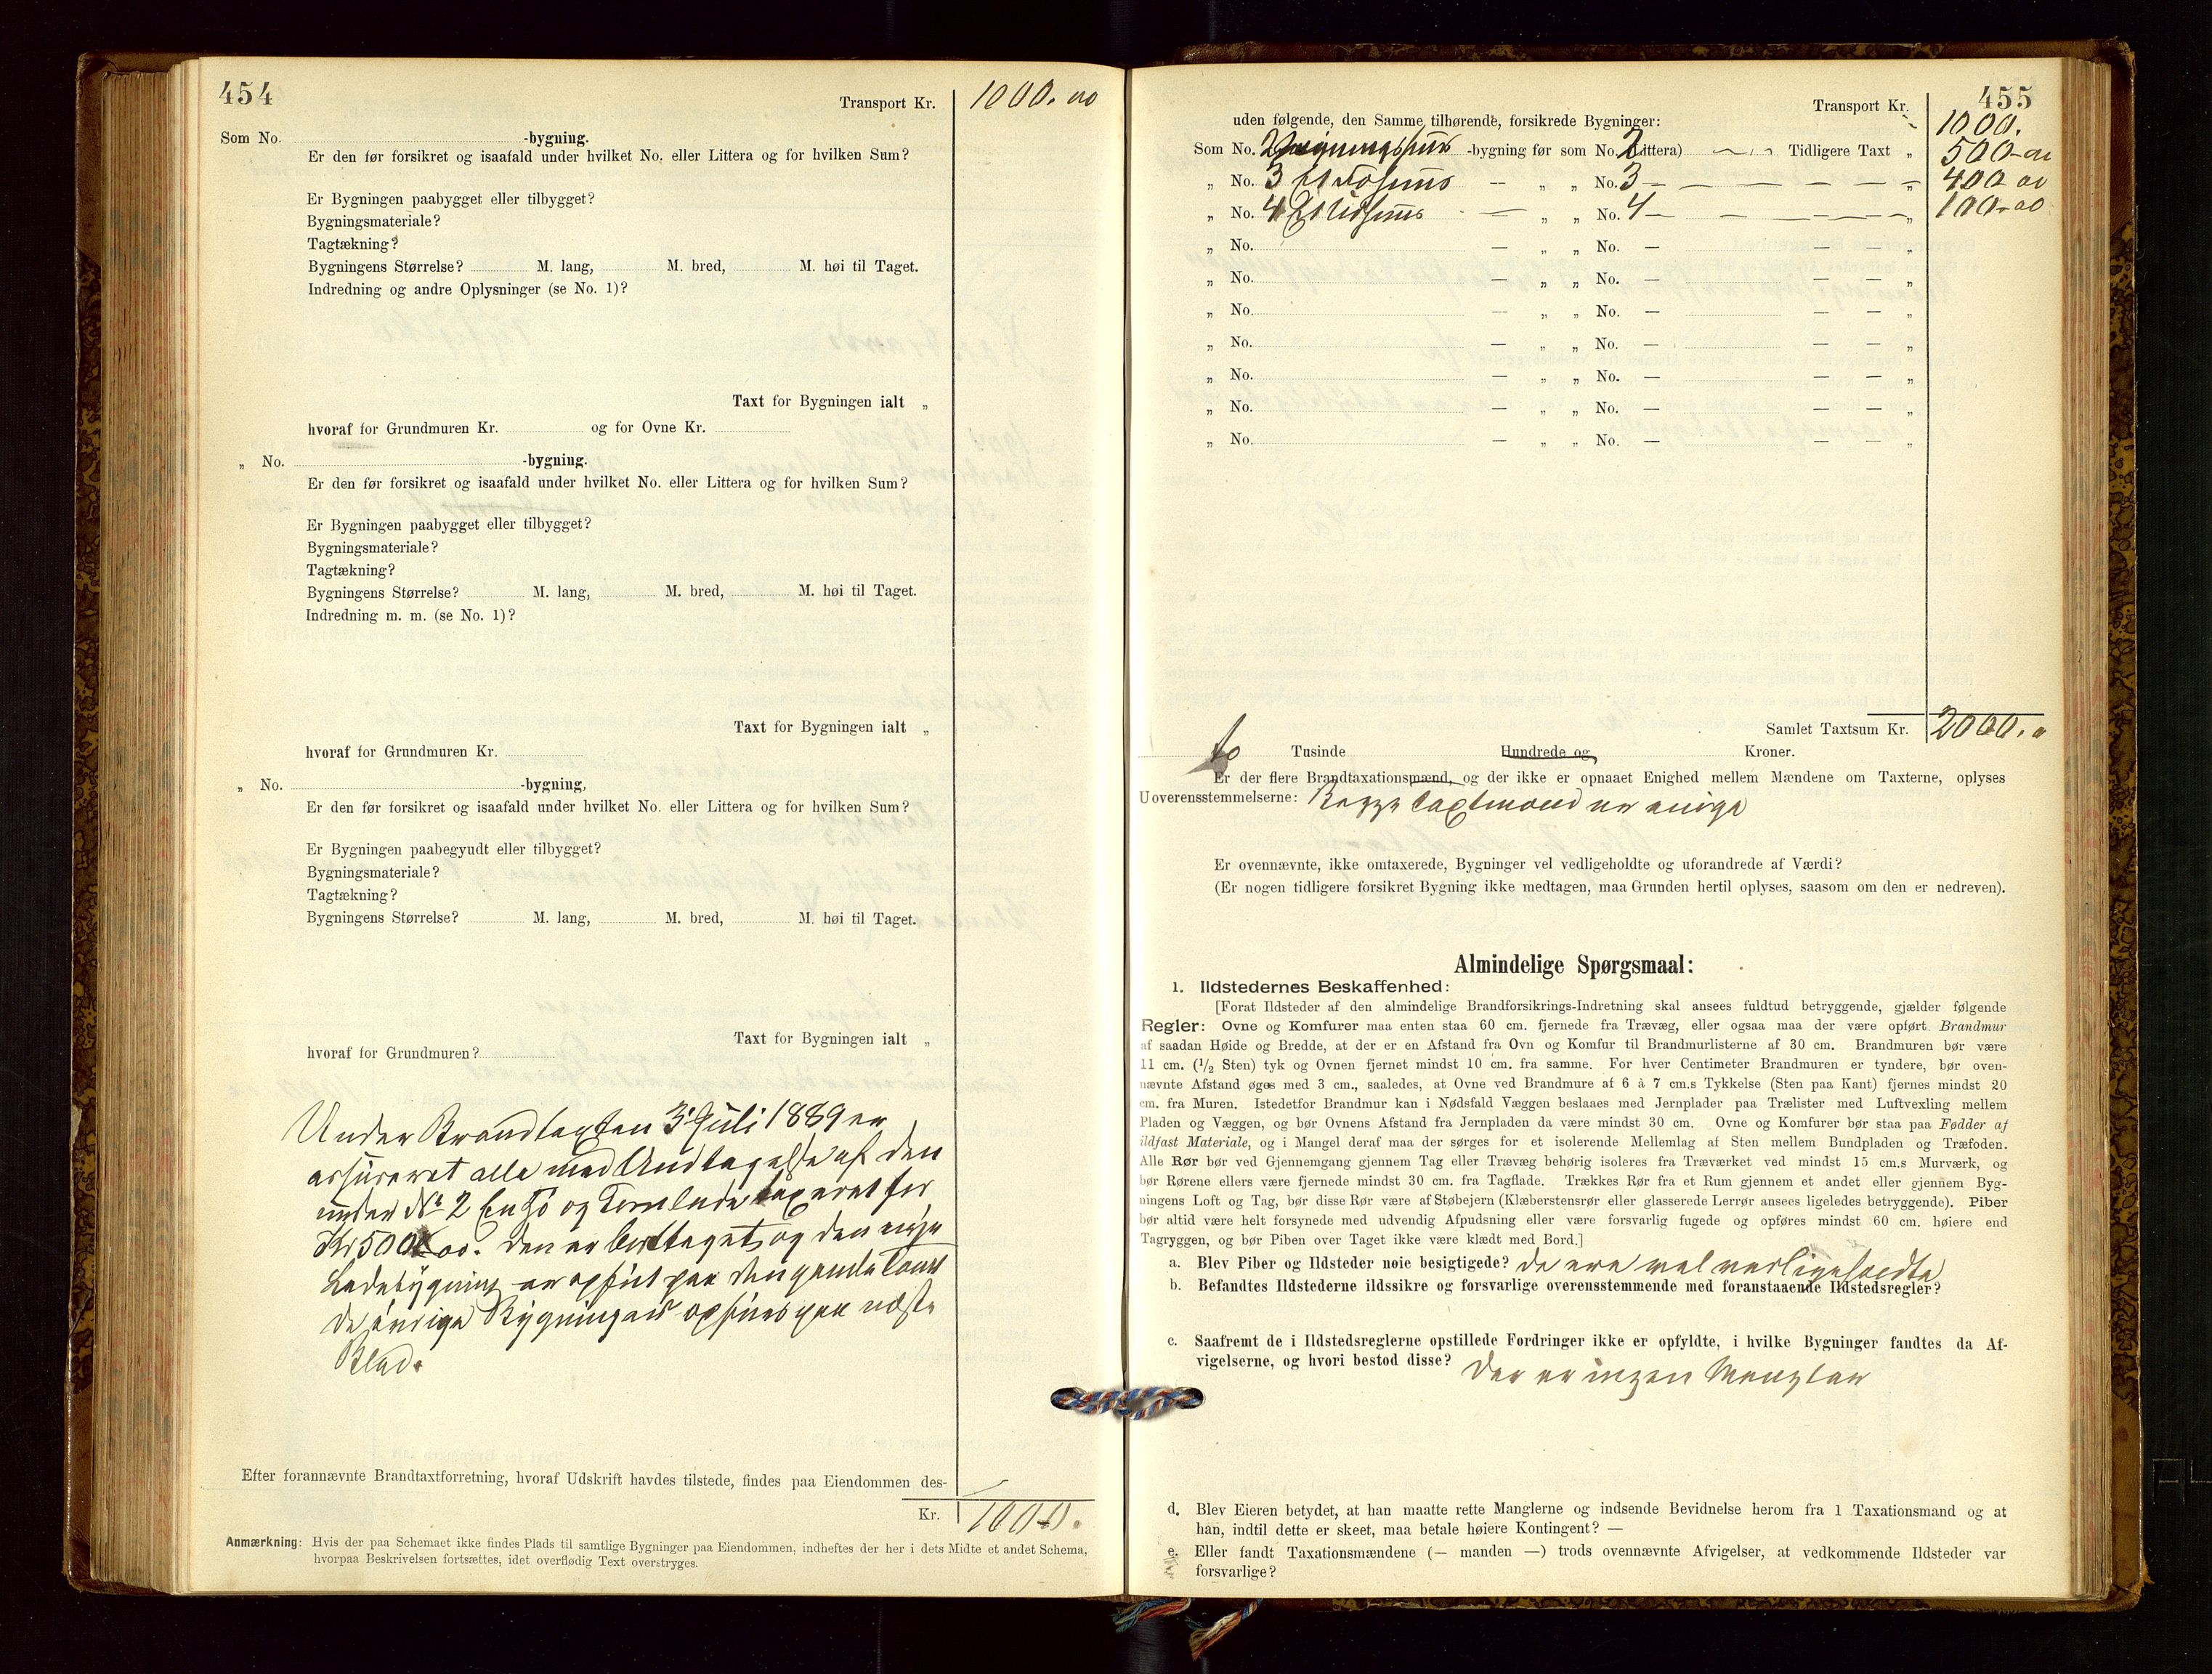 454
Transport Kr. 1000. 00
Som No. -bygning.
Er den før forsikret og isaafald under hvilket No. eller Littera og for hvilken Sum?
Er Bygningen paabygget eller tilbygget?
Bygningsmateriale?
Tagtækning?
Bygningens Størrelse? M. lang, M. bred, M. høi til Taget.
Indredning og andre Oplysninger (se No. 1)?
Taxt for Bygningen ialt „
hvoraf for Grundmuren Kr. og for Ovne Kr.
„ No. -bygning.
Er den før forsikret og isaafald under hvilket No. eller Littera og for hvilken Sum?
Er Bygningen paabygget eller tilbygget?
Bygningsmateriale?
Tagtækning?
Bygningens Størrelse? M. lang, M. bred, M. høi til Taget.
Indredning m. m. (se No. 1)?
Taxt for Bygningen ialt „
hvoraf for Grundmuren Kr.
„ No. -bygning,
Er den før forsikret og isaafald under hvilket No. eller Littera og for hvilken Sum?
Er Bygningen paabegyudt eller tilbygget?
Bygningsmateriale?
Tagtækning?
Bygningens Størrelse? M. lang, M. bred, M. høi til Taget.
Taxt for Bygningen ialt „
hvoraf for Grundmuren?
Under Brandtaxten 3 Juli 1889 er
assureret alle med Undtagelse af den
under No 2 og Kornlade taxeret for
Kr 500 00. den er borttaget, og den nye
Ladebygning er opført paa den gamle Tomt
De øvrige Bygninger opføres paa næste
Blad.
Efter forannævnte Brandtaxtforretning, hvoraf Udskrift havdes tilstede, findes paa Eiendommen des-
Kr. 1000.
Anmærkning: Hvis der paa Schemaet ikke findes Plads til samtlige Bygninger paa Eiendommen, indheftes der her i dets Midte et andet Schema,
hvorpaa Beskrivelsen fortsættes, idet overflødig Text overstryges.
455
Transport Kr. 1000.
uden følgende, den Samme tilhørende, forsikrede Bygninger:
Som No. 2 -bygning før som No. 2 (Littera) Tidligere Taxt „ 500 00
„ No. 3 — „ „ No. 3 — — — „ 400 00
„ No. 4 — „ „ No. 4 — — — „ 100 00
„ No. — „ „ No. — — — „
„ No. — „ „ No. — — — „
„ No. — „ „ No. — — — „
„ No. — „ „ No. — — — „
„ No. — „ „ No. — — — „
„ No. — „ „ No. — — — „
„ No. — „ „ No. — — — „
Samlet Taxtsum Kr. 2000.
to Tusinde Hundrede og Kroner.
Er der flere Brandtaxationsmænd, og der ikke er opnaaet Enighed mellem Mændene om Taxterne, oplyses
Uoverensstemmelserne: Begge Taxtmænd er enige
Er ovennævnte, ikke omtaxerede, Bygninger vel vedligeholdte og uforandrede af Værdi?
(Er nogen tidligere forsikret Bygning ikke medtagen, maa Grunden hertil oplyses, saasom om den er nedreven).
Almindelige Spørgsmaal:
1. Ildstedernes Beskaffenhed:
[Forat Ildsteder af den almindelige Brandforsikrings-Indretning skal ansees fuldtud betryggende, gjælder følgende
Regler: Ovne og Komfurer maa enten staa 60 cm. fjernede fra Trævæg, eller ogsaa maa der være opført Brandmur
af saadan Høide og Bredde, at der er en Afstand fra Ovn og Komfur til Brandmurlisterne af 30 cm. Brandmuren bør være
11 cm. (1/2 Sten) tyk og Ovnen fjernet mindst 10 cm. fra samme. For hver Centimeter Brandmuren er tyndere, bør oven-
nævnte Afstand øges med 3 cm., saaledes, at Ovne ved Brandmure af 6 à 7 cm.s Tykkelse (Sten paa Kant) fjernes mindst 20
cm. fra Muren. Istedetfor Brandmur kan i Nødsfald Væggen beslaaes med Jernplader paa Trælister med Luftvexling mellem
Pladen og Væggen, og bør Ovnens Afstand fra Jernpladen da være mindst 30 cm. Ovne og Komfurer bør staa paa Fødder af
ildfast Materiale, og i Mangel deraf maa der sørges for et isolerende Mellemlag af Sten mellem Bundpladen og Træfoden.
Alle Rør bør ved Gjennemgang gjennem Tag eller Trævæg behørig isoleres fra Træværket ved mindst 15 cm.s Murværk, og
bør Rørene ellers være fjernede mindst 30 cm. fra Tagflade. Trækkes Rør fra et Rum gjennem et andet eller gjennem Byg-
ningens Loft og Tag, bør disse Rør være af Støbejern (Klæberstensrør eller glasserede Lerrør ansees ligeledes betryggende). Piber
bør altid være helt forsynede med udvendig Afpudsning eller være forsvarlig fugede og opføres mindst 60 cm. høiere end
Tagryggen, og bør Piben over Taget ikke være klædt med Bord.]
a. Blev Piber og Ildsteder nøie besigtigede? de ere vel vedligeholdte
b. Befandtes Ildstederne ildssikre og forsvarlige overensstemmende med foranstaaende Ildstedsregler?
c. Saafremt de i Ildstedsreglerne opstillede Fordringer ikke er opfyldte, i hvilke Bygninger fandtes da Af-
vigelserne, og hvori bestod disse? Der er ingen Mangler
d. Blev Eieren betydet, at han maatte rette Manglerne og indsende Bevidnelse herom fra 1 Taxationsmand og at
han, indtil dette er skeet, maa betale høiere Kontingent? —
e. Eller fandt Taxationsmændene (— manden —) trods ovennævnte Afvigelser, at vedkommende Ildsteder var
forsvarlige?